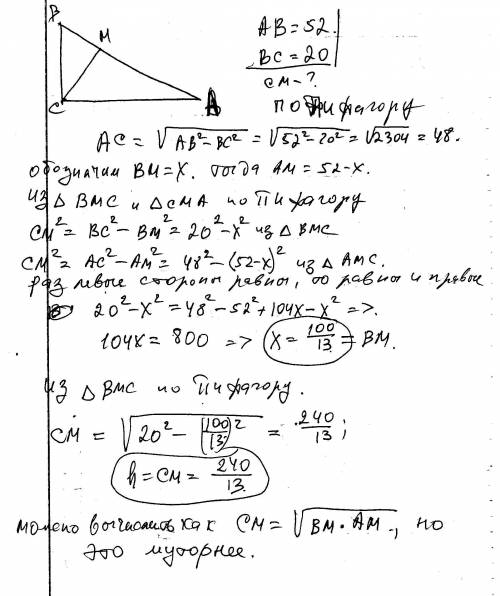 B
M
C
A
AB = 52
BC = 20
CM - ?
по Пифагору
AC = √(AB² - BC²) = √(52² - 20²) = √2304 = 48.
обозначим BM = X. тогда AM = 52 - X.
из △ BMC и △ CMA по Пифагору
CM² = BC² - BM² = 20² - X² из △ BMC
CM² = AC² - AM² = 48² - (52 - X)² из △ AMC.
раз левые стороны равны, то равны и правые
20² - X² = 48² - 52² + 104X - X² =>
104X = 800 => X = 100/13 = BM.
из △ BMC по Пифагору.
CM = √(20² - (100/13)²) = 240/13;
h = CM = 240/13
можно вычислить как CM = √(BM · AM), но
это муторнее.